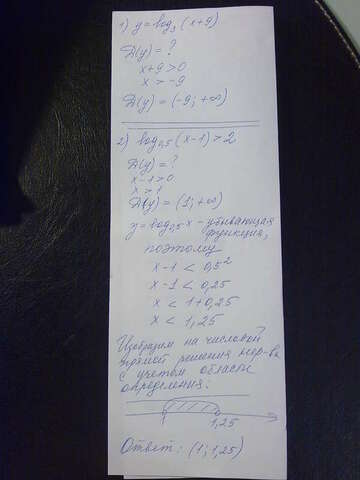 1) y = log₃ (x+9)
D(y) = ?
x+9 > 0
x > -9
D(y) = (-9; +∞)
2) log₀,₅ (x-1) > 2
D(y) = ?
x-1 > 0
x > 1
D(y) = (1; +∞)
y = log₀,₅ x - убывающая
функция,
поэтому
x-1 < 0,5²
x-1 < 0,25
x < 1+0,25
x < 1,25
Изобразим на числовой
прямой решения нер-ва
с учетом области
определения.
1 1,25
Ответ: (1; 1,25)